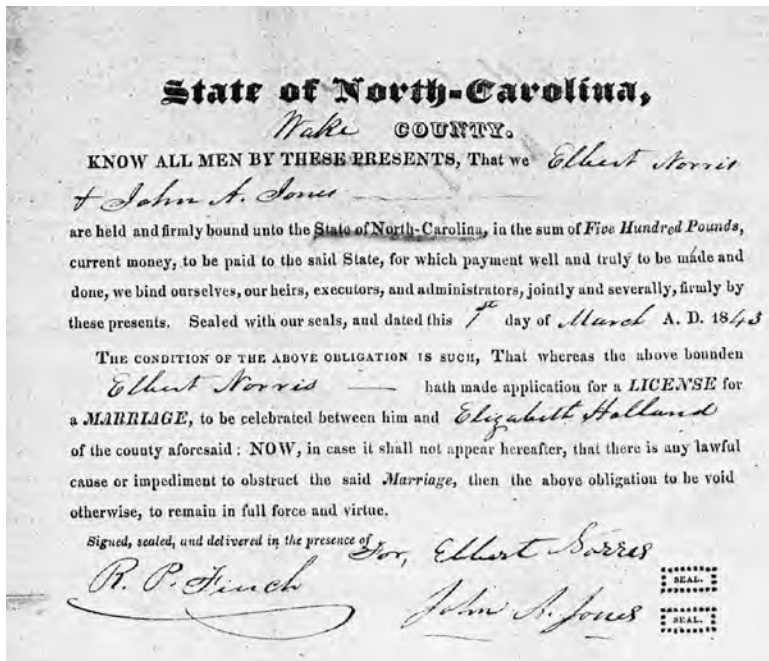 State of North-Carolina,
Wake COUNTY.
KNOW ALL MEN BY THESE PRESENTS, That we Elbert Norris
& John A. Jones
are held and firmly bound unto the State of North-Carolina, in the sum of Five Hundred Pounds,
current money, to be paid to the said State, for which payment well and truly to be made and
done, we bind ourselves, our heirs, executors, and administrators, jointly and severally, firmly by
these presents. Sealed with our seals, and dated this 1st day of March A. D. 1843
THE CONDITION OF THE ABOVE OBLIGATION IS SUCH, That whereas the above bounden
Elbert Norris — hath made application for a LICENSE for
a MARRIAGE, to be celebrated between him and Elizabeth Holland
of the county aforesaid: NOW, in case it shall not appear hereafter, that there is any lawful
cause or impediment to obstruct the said Marriage, then the above obligation to be void
otherwise, to remain in full force and virtue.
Signed, sealed, and delivered in the presence of
For, Elbert Norris
R. P. Finch SEAL.
John A. Jones SEAL.